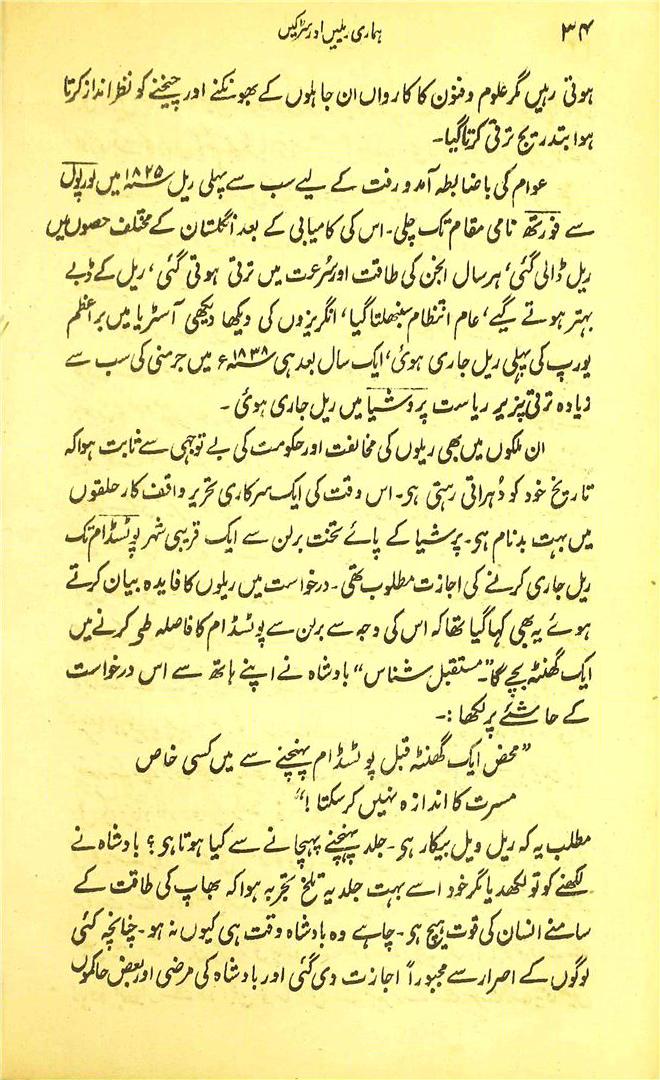 ۳۴
ہماری ریلیں اور سڑکیں
ہوتی رہیں مگر علوم و فنون کا کارواں ان جاہلوں کے بھونکنے اور چیخنے کو نظر انداز کرتا
ہوا بتدریج ترقی کرتا گیا۔
عوام کی باضابطہ آمد و رفت کے لیے سب سے پہلی ریل ۱۸۲۵ء میں لورپول
سے فورتھ نامی مقام تک چلی۔ اس کی کامیابی کے بعد انگلستان کے مختلف حصوں میں
ریل ڈالی گئی، ہر سال انجن کی طاقت اور سُرعت میں ترقی ہوتی گئی، ریل کے ڈبے
بہتر ہوتے گیے، عام انتظام سنبھلتا گیا، انگریزوں کی دیکھا دیکھی آسٹریا میں براعظم
یورپ کی پہلی ریل جاری ہوئی، ایک سال بعد ہی ۱۸۳۸ء میں جرمنی کی سب سے
زیادہ ترقی پزیر ریاست پروشیا میں ریل جاری ہوئی ۔
ان ملکوں میں بھی ریلوں کی مخالفت اور حکومت کی بے توجہی سے ثابت ہوا کہ
تاریخ خود کو دُہراتی رہتی ہو۔ اس وقت کی ایک سرکاری تحریر واقف کار حلقوں
میں بہت بدنام ہو۔ پرشیا کے پائے تخت برلن سے ایک قریبی شہر پوٹسڈام تک
ریل جاری کرنے کی اجازت مطلوب تھی۔ درخواست میں ریلوں کا فایدہ بیان کرتے
ہوئے یہ بھی کہا گیا تھا کہ اس کی وجہ سے برلن سے پوٹسڈام کا فاصلہ طی کرنے میں
ایک گھنٹہ بچے گا۔ ”مستقبل شناس“ بادشاہ نے اپنے ہاتھ سے اس درخواست
کے حاشئے پر لکھا :۔
”محض ایک گھنٹہ قبل پوٹسڈام پہنچنے سے میں کسی خاص
مسرت کا اندازہ نہیں کر سکتا !“
مطلب یہ کہ ریل ویل بیکار ہو۔ جلد پہنچنے پہچانے سے کیا ہوتا ہو ؟ بادشاہ نے
لکھنے کو تو لکھدیا مگر خود اسے بہت جلد یہ تلخ تجربہ ہوا کہ بھاپ کی طاقت کے
سامنے انسان کی قوت ہیچ ہو۔ چاہے وہ بادشاہ وقت ہی کیوں نہ ہو۔ چنانچہ کئی
لوگوں کے اصرار سے مجبوراً اجازت دی گئی اور بادشاہ کی مرضی اور بعض حاکموں